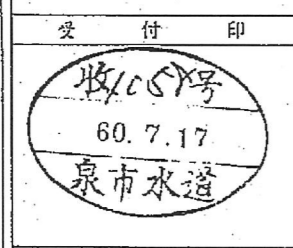 受付印
収 号
60.7.17
泉市水道